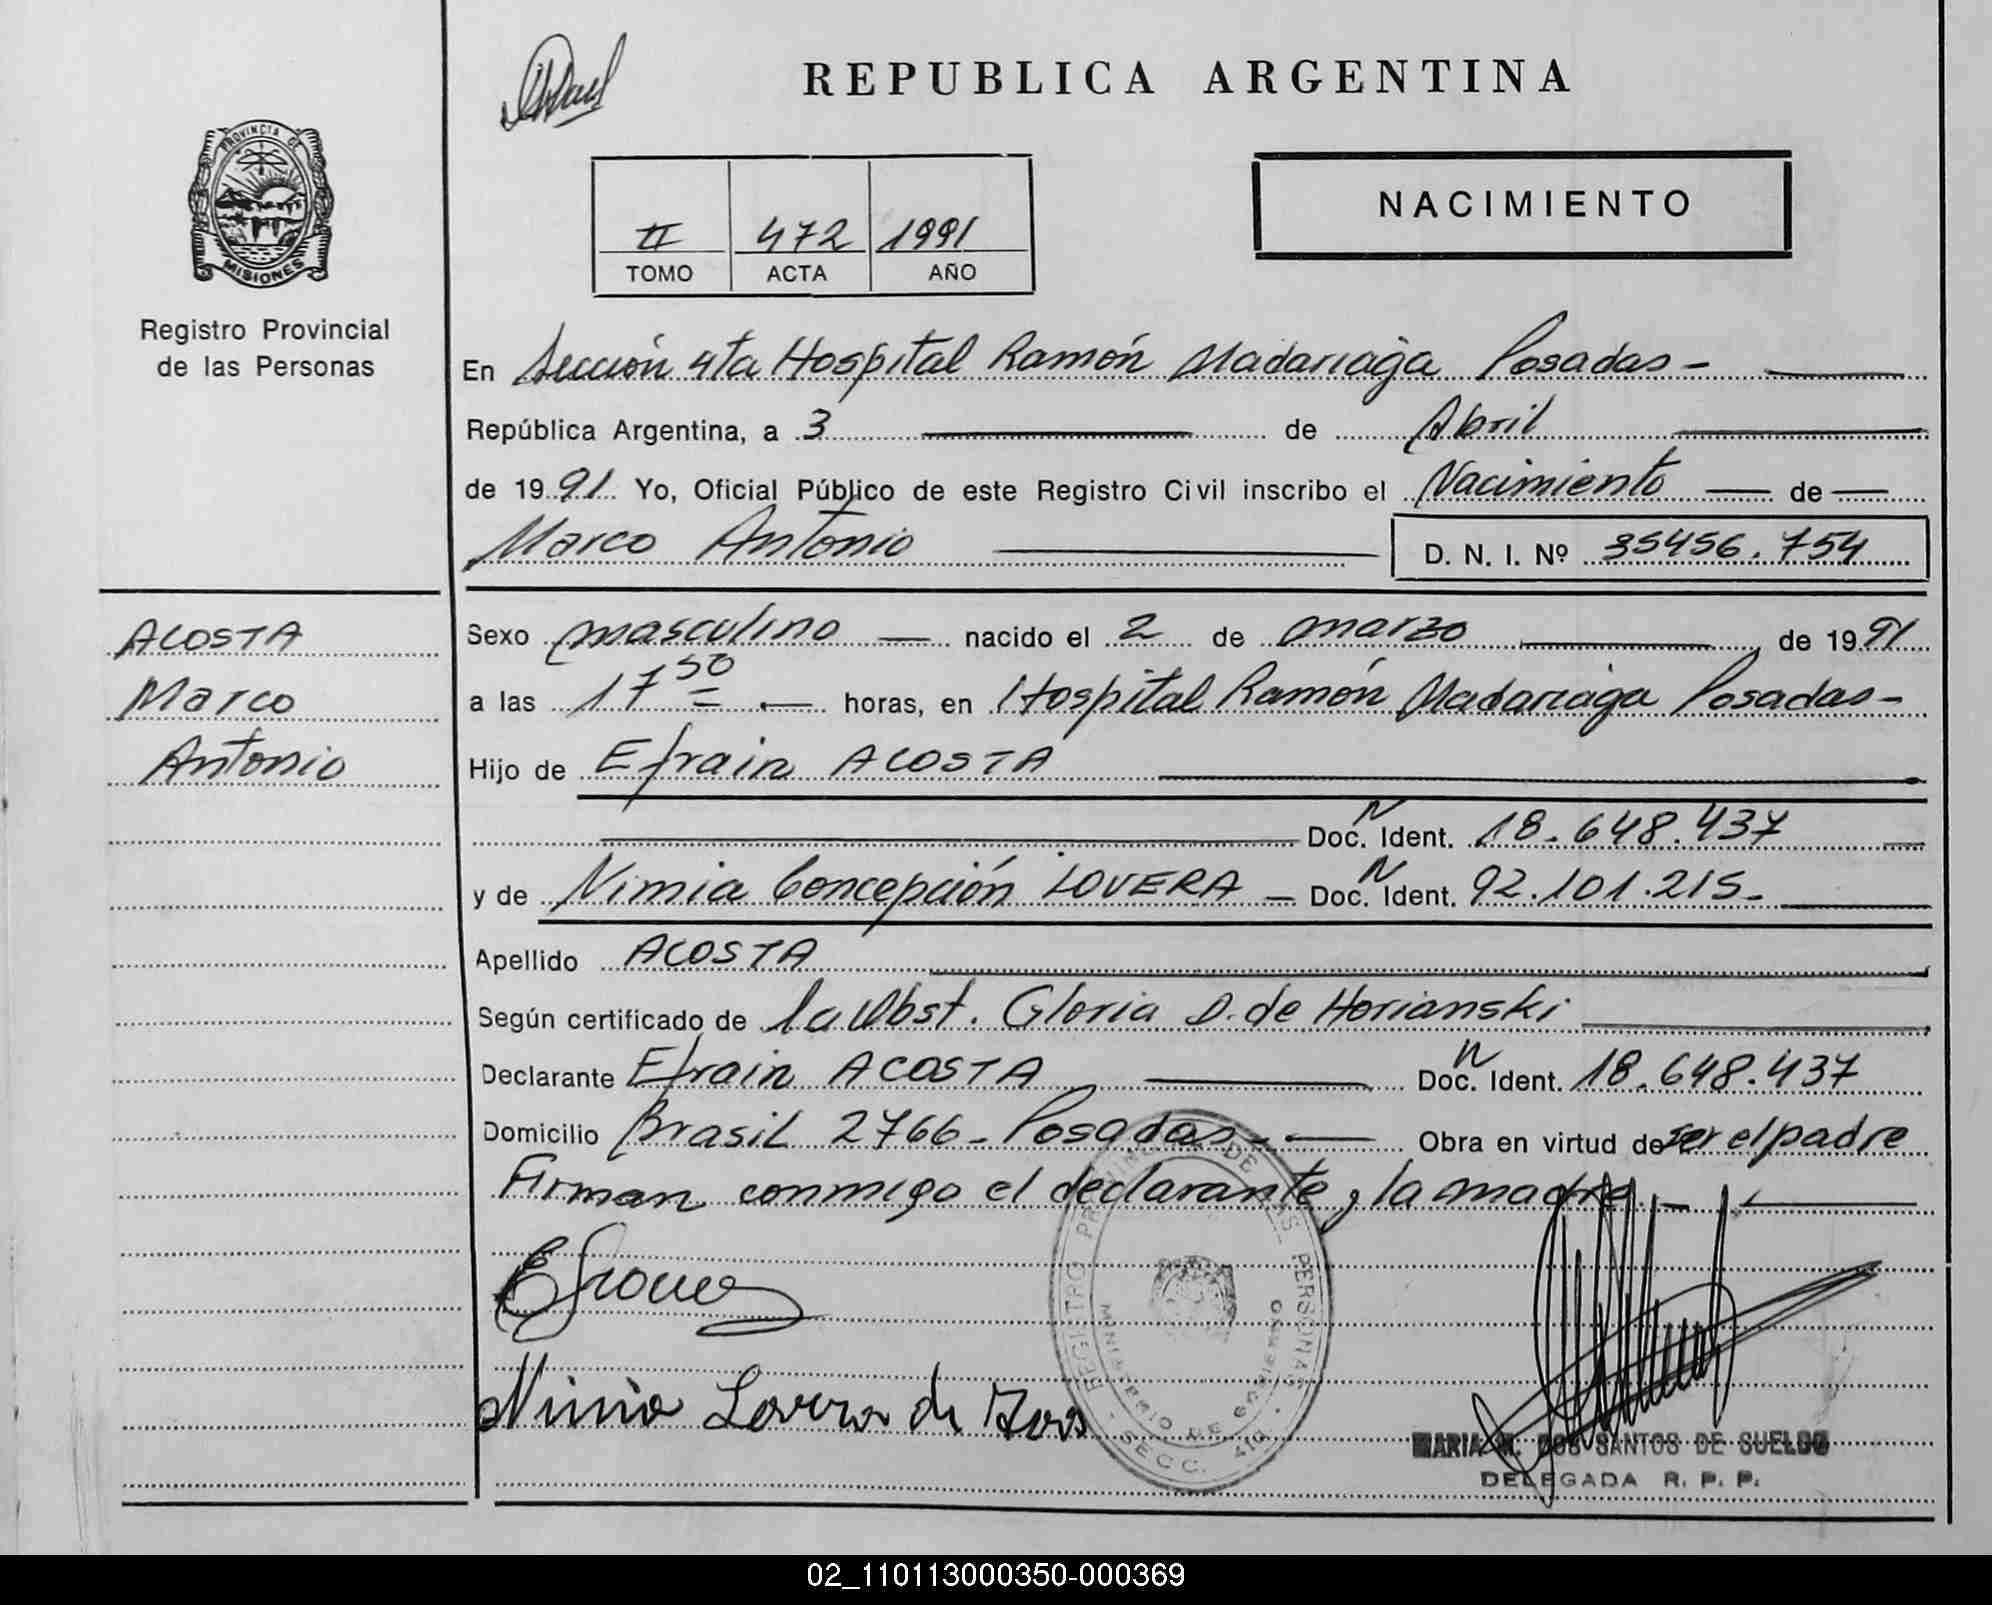 REPUBLICA ARGENTINA
PROVINCIA DE
MISIONES
Registro Provincial
de las Personas
II 472 1991
TOMO ACTA AÑO
NACIMIENTO
En Sección 4ta Hospital Ramón Madariaga Posadas -
República Argentina, a 3 de Abril
de 1991 Yo, Oficial Público de este Registro Civil inscribo el Nacimiento de
Marco Antonio D. N. I. Nº 35456.754
ACOSTA
Marco
Antonio
Sexo masculino nacido el 2 de marzo de 1991
a las 17 50 horas, en Hospital Ramón Madariaga Posadas -
Hijo de Efrain ACOSTA
Doc. N Ident. 18.648.437
y de Nimia Concepción LOVERA - Doc. N Ident. 92.101.215 -
Apellido ACOSTA
Según certificado de la Obst. Gloria D. de Horianski
Declarante Efrain ACOSTA Doc. N Ident. 18.648.437
Domicilio Brasil 2766 - Posadas - Obra en virtud de ser el padre
Firman conmigo el declarante y la madre. -
REGISTRO PROVINCIAL DE LAS PERSONAS
MINISTERIO DE GOBIERNO
SECC. 4ta
Nimia Lovera de
DOS SANTOS DE SUELDO
DELEGADA R. P. P.
02_110113000350-000369